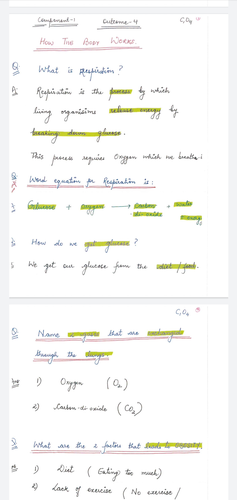 Component-1 Outcome-4 C₁O₄
How The Body Works.
Q What is Respiration?
Respiration is the process by which
living organisms release energy by
breaking down glucose.
This process requires Oxygen which we breathe
Q Word equation for Respiration is:
Glucose + oxygen → Carbon + water
-di-oxide + energy
How do we get glucose?
We get our glucose from the diet / food.
C₁O₄
Q Name 2 gases that are exchanged
through the lungs.
1) Oxygen (O₂)
2) Carbon-di-oxide (CO₂)
What are the 2 factors that leads to obesity
1) Diet (Eating too much)
2) Lack of exercise (No exercise /